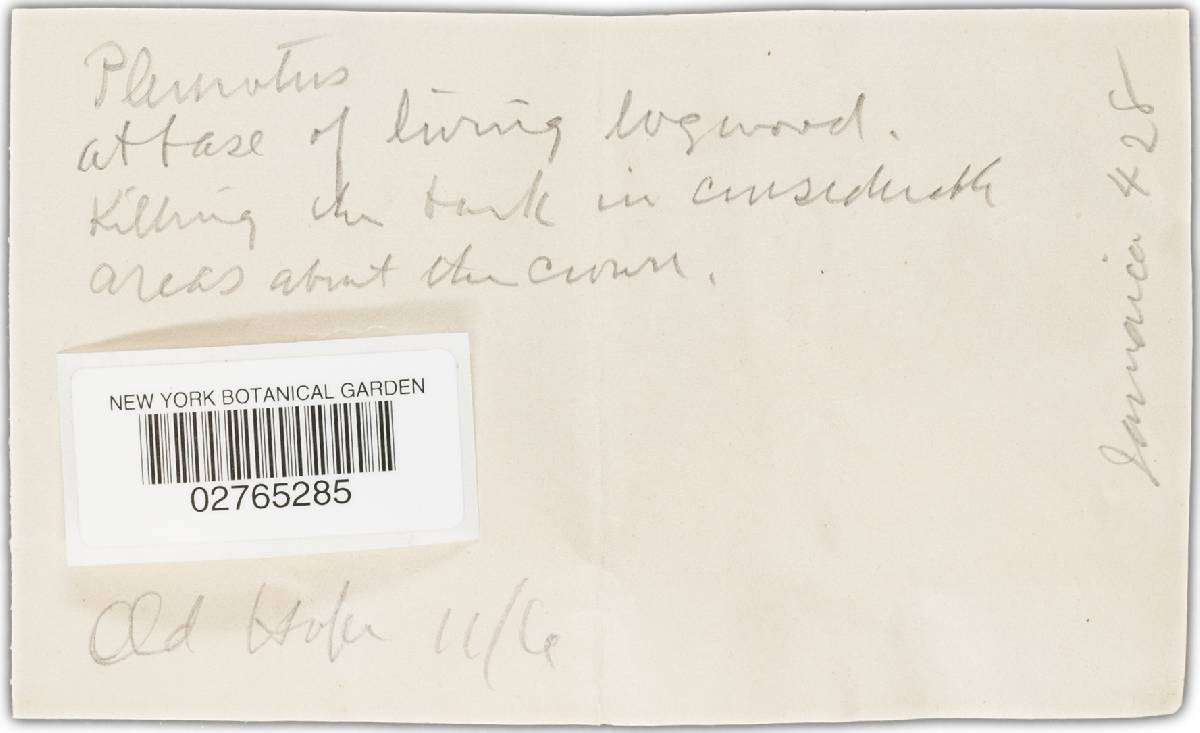 Pleurotus
at base of living logwood.
Killing the bark in considerable
areas about the crown.
NEW YORK BOTANICAL GARDEN
02765285
Old Hope 11/6
Jamaica 428